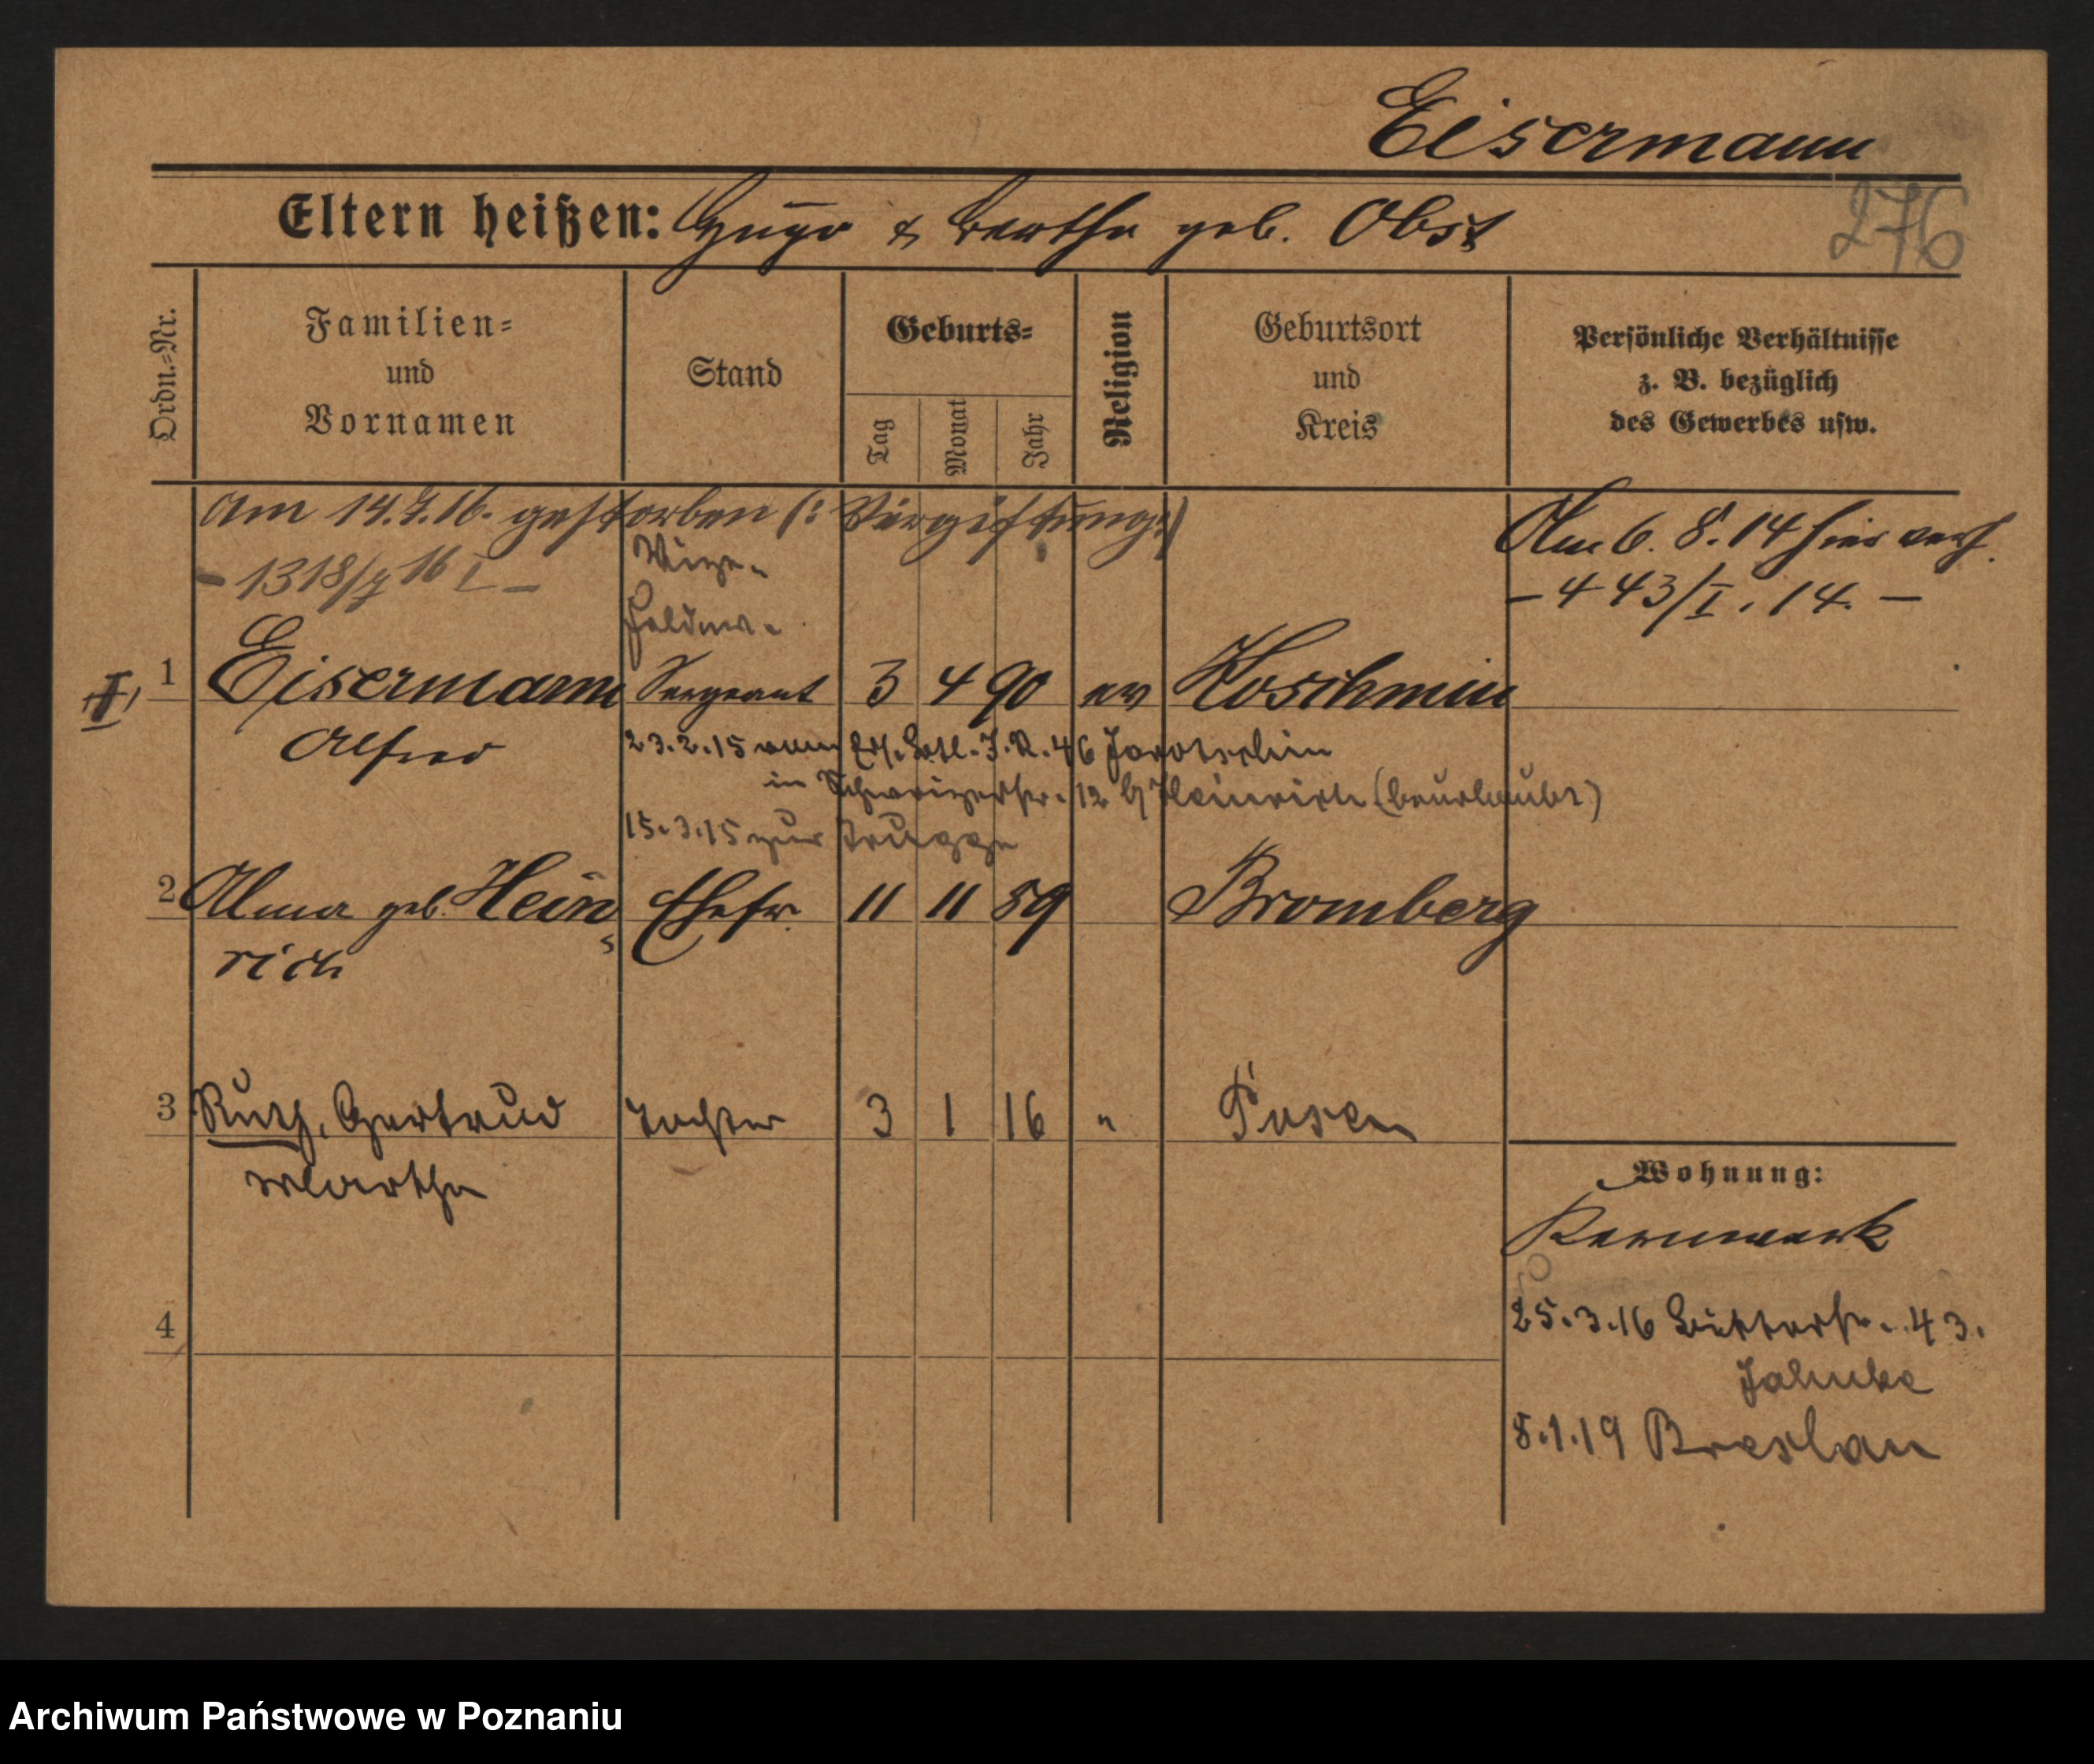 Eisermann
276
Eltern heißen: Hugo & Bertha geb. Obst
Ordn.=Nr.
Familien=
und
Vornamen
Stand
Geburts=
Tag
Monat
Jahr
Religion
Geburtsort
und
Kreis
Persönliche Verhältnisse
z. B. bezüglich
des Gewerbes usw.
Am 14.7.16. gestorben (: Vergiftung :)
- 1318/7 16 I -
Am 6. 8. 14 hier verh.
- 443/I. 14. -
Vize-
Feldw.
II, 1 Eisermann Sergeant 3 4 90 ev Koschmin
Alfred
23.2.15 vom Ers. Batl. I. R. 46 Jarotschin
in 12 b/ Heinrich (beurlaubt)
15.3.15 zur Truppe
2 Alma geb. Hein Ehefr. 11 11 89 Bromberg
rich
3 Ruth, Gertrud Tochter 3 1 16 " Posen
Martha
Wohnung:
Kernwerk
25.3.16 43.
Jahnke
8.1.19 Breslau
4
Archiwum Państwowe w Poznaniu